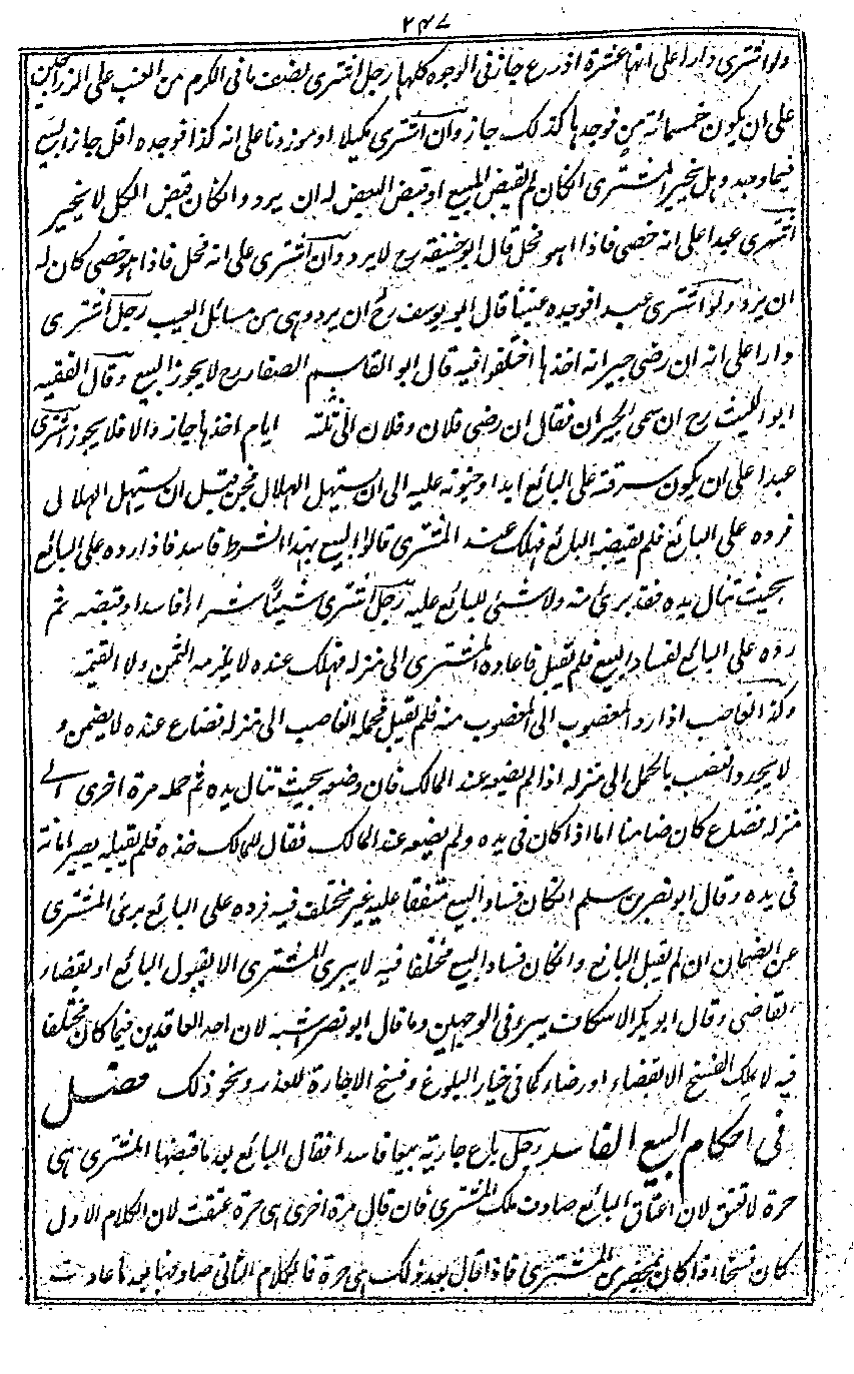 ٢٤٧
ولو اشترى دارا على انها عشرة اذرع جاز فى الوجوه كلها رجل اشترى نصف ما فى الكرم من العنب على الزراجين
على ان يكون خمسمائة من فوجدها كذلك جاز وان اشترى مكيلا او موزونا على انه كذا فوجده اقل جاز البيع
فيما وجد وهل يخير المشترى انكان لم يقبض المبيع او قبض البعض له ان يرد وانكان قبض الكل لا يخير
اشترى عبدا على انه خصى فاذا هو فحل قال ابو حنيفة رح لا يرد وان اشترى على انه فحل فاذا هو خصى كان له
ان يرد ولو اشترى عبدا فوجده عنينا قال ابو يوسف رح له ان يرد وهى من مسائل العيب رجل اشترى
دارا على انه ان رضى جيرانه اخذها اختلفوا فيه قال ابو القاسم الصفار رح لا يجوز البيع وقال الفقيه
ابو الليث رح ان سمى الجيران فقال ان رضى فلان وفلان الى ثلثة ايام اخذها جاز والا فلا يجوز اشترى
عبدا على ان يكون سرقته على البائع ابدا وجنونه عليه الى ان يستهل الهلال فجن قبل ان يستهل الهلال
فرده على البائع فلم يقبضه البائع فهلك عند المشترى قالوا البيع بهذا الشرط فاسد فاذا رده على البائع
بحيث تنال يده فقد برئ منه ولا شئ للبائع عليه رجل اشترى شيئا شراء فاسدا وقبضه ثم
رده على البائع لفساد البيع فلم يقبل فاعاده المشترى الى منزله فهلك عنده لا يلزمه الثمن ولا القيمة
وكذا الغاصب اذا رد المغصوب الى المغصوب منه فلم يقبل فحمله الغاصب الى منزله فضاع عنده لا يضمن و
لا يتجدد الغصب بالحمل الى منزله اذا لم يضعه عند المالك فان وضعه بحيث تنال يده ثم حمله مرة اخرى الى
منزله فضاع كان ضامنا اما اذا كان فى يده ولم يضعه عند المالك فقال للمالك خذه فلم يقبله يصير امانة
فى يده وقال ابو نصر بن سلم انكان فساد البيع متفقا عليه غير مختلف فيه فرده على البائع برئ المشترى
عن الضمان ان لم يقبل البائع وانكان فساد البيع مختلفا فيه لا يبرئ المشترى الا بقبول البائع او بقضاء
القاضى وقال ابو بكر الاسكاف يبرء فى الوجهين وما قال ابو نصر اشبه لان احد العاقدين فيما كان مختلفا
فيه لا يملك الفسخ الا بقضاء او رضاء كما فى خيار البلوغ وفسخ الاجارة للعذر ونحو ذلك فصل
فى احكام البيع الفاسد رجل باع جارية بيعا فاسدا فقال البائع بعد ما قبضها المشترى هى
حرة لا تعتق لان اعتاق البائع صادف ملك المشترى فان قال مرة اخرى هى حرة عتقت لان الكلام الاول
كان فسخا اذا كان بمحضر من المشترى فاذا قال بعد ذلك هى حرة فالكلام الثانى صادفها بعد ما عادت